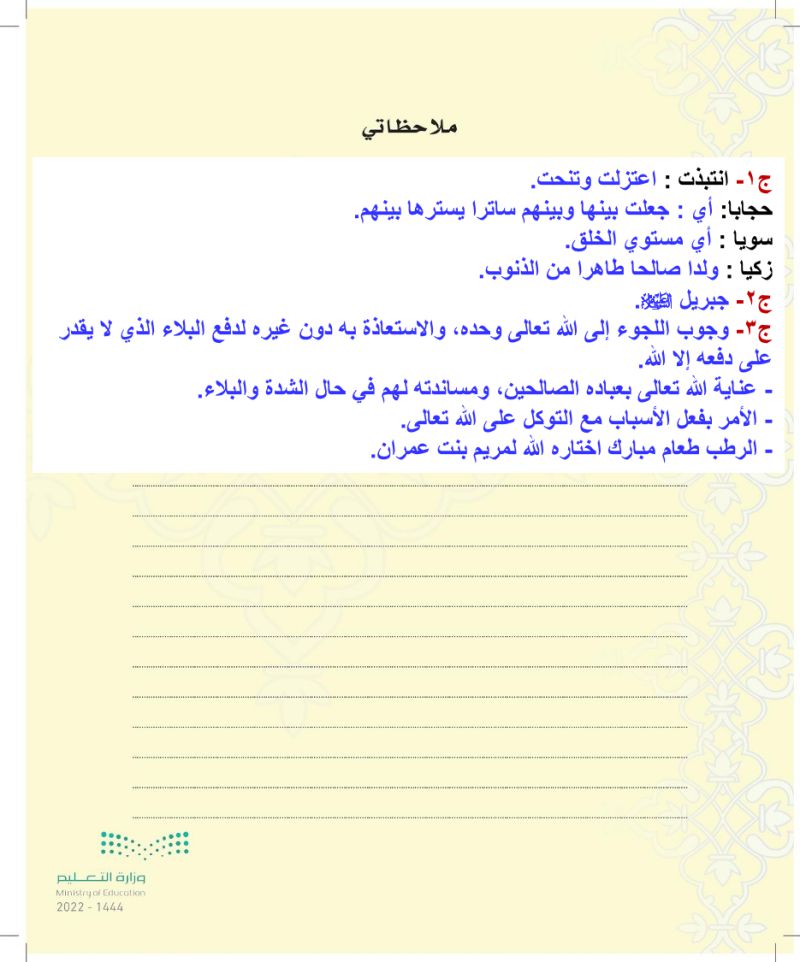 ملاحظاتي
ج١- انتبذت : اعتزلت وتنحت.
حجابا: أي : جعلت بينها وبينهم ساترا يسترها بينهم.
سويا : أي مستوي الخلق.
زكيا : ولدا صالحا طاهرا من الذنوب.
ج٢- جبريل ﵇.
ج٣- وجوب اللجوء إلى الله تعالى وحده، والاستعاذة به دون غيره لدفع البلاء الذي لا يقدر
على دفعه إلا الله.
- عناية الله تعالى بعباده الصالحين، ومساندته لهم في حال الشدة والبلاء.
- الأمر بفعل الأسباب مع التوكل على الله تعالى.
- الرطب طعام مبارك اختاره الله لمريم بنت عمران.
وزارة التعـــليم
Ministry of Education
2022 - 1444